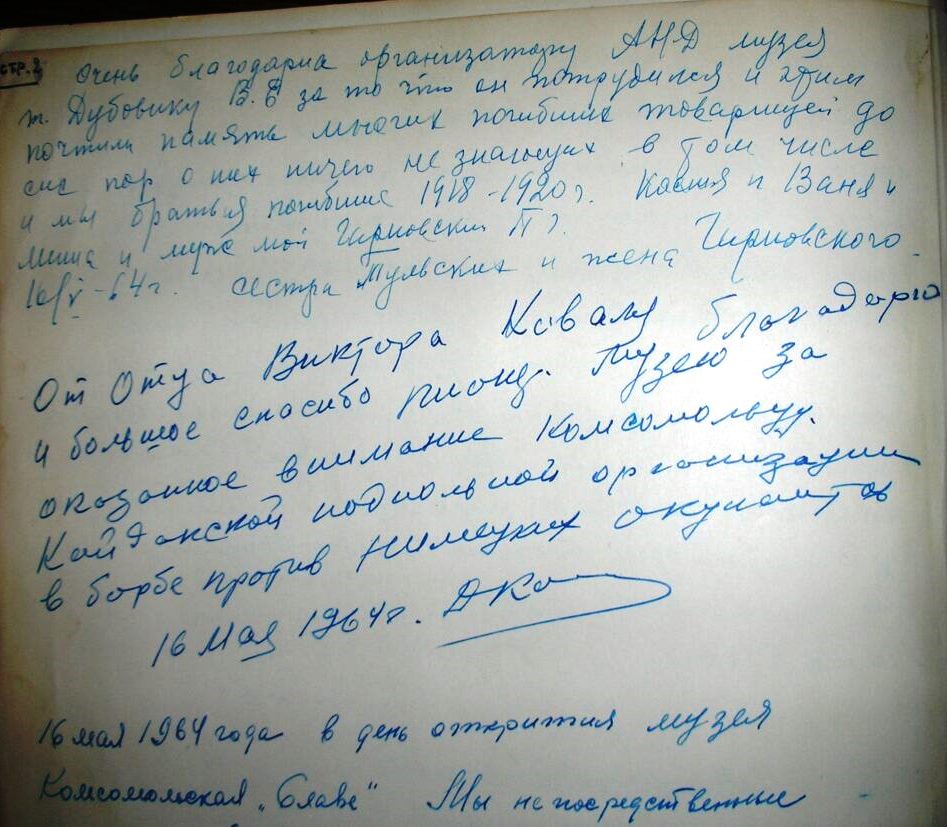 стр. 2
Очень благодарна организатору АНД музея
т. Дубовику В.Е за то что он потрудился и этим
почтили память многих погибших товарищей до
сих пор о них ничего не знающих в том числе
и мы братья погибшие 1918-1920 г. Костя и Ваня и
Миша и муж мой Гирновский П
16/V-64 г. сестра Тульских и жена Гирновского.
От Отца Виктора Коваля благодарю
и большое спасибо пионер. Музею за
оказанное внимание Комсомольцу.
Кайдакской подпольной организации
в борбе против Немецких окупантов
16 Мая 1964 г. ДКо
16 мая 1964 года в день открития музея
Комсомольская „Славе" Мы непосредственные